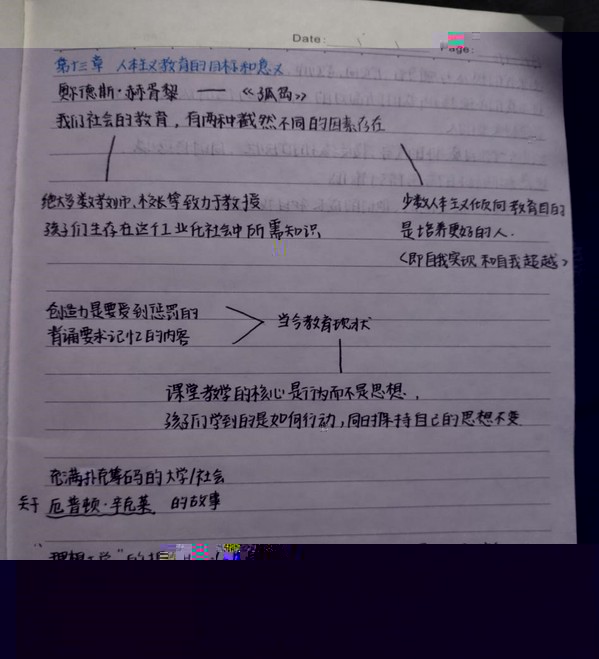 Date: / /
Page:
第十三章 人本主义教育的目标和意义
奥德斯·赫胥黎 —— 《孤岛》
我们社会的教育，有两种截然不同的因素存在
绝大多数教师、校长等致力于教授
孩子们生存在这个工业化社会中所需知识
少数人本主义化倾向 教育目的
是培养更好的人.
<即自我实现和自我超越>
创造力是要受到惩罚的
背诵要求记忆的内容
当今教育现状
课堂教学的核心是行为而不是思想.
孩子们学到的是如何行动,同时保持自己的思想不变
充满扑克筹码的大学/社会
关于 厄普顿·辛克莱 的故事